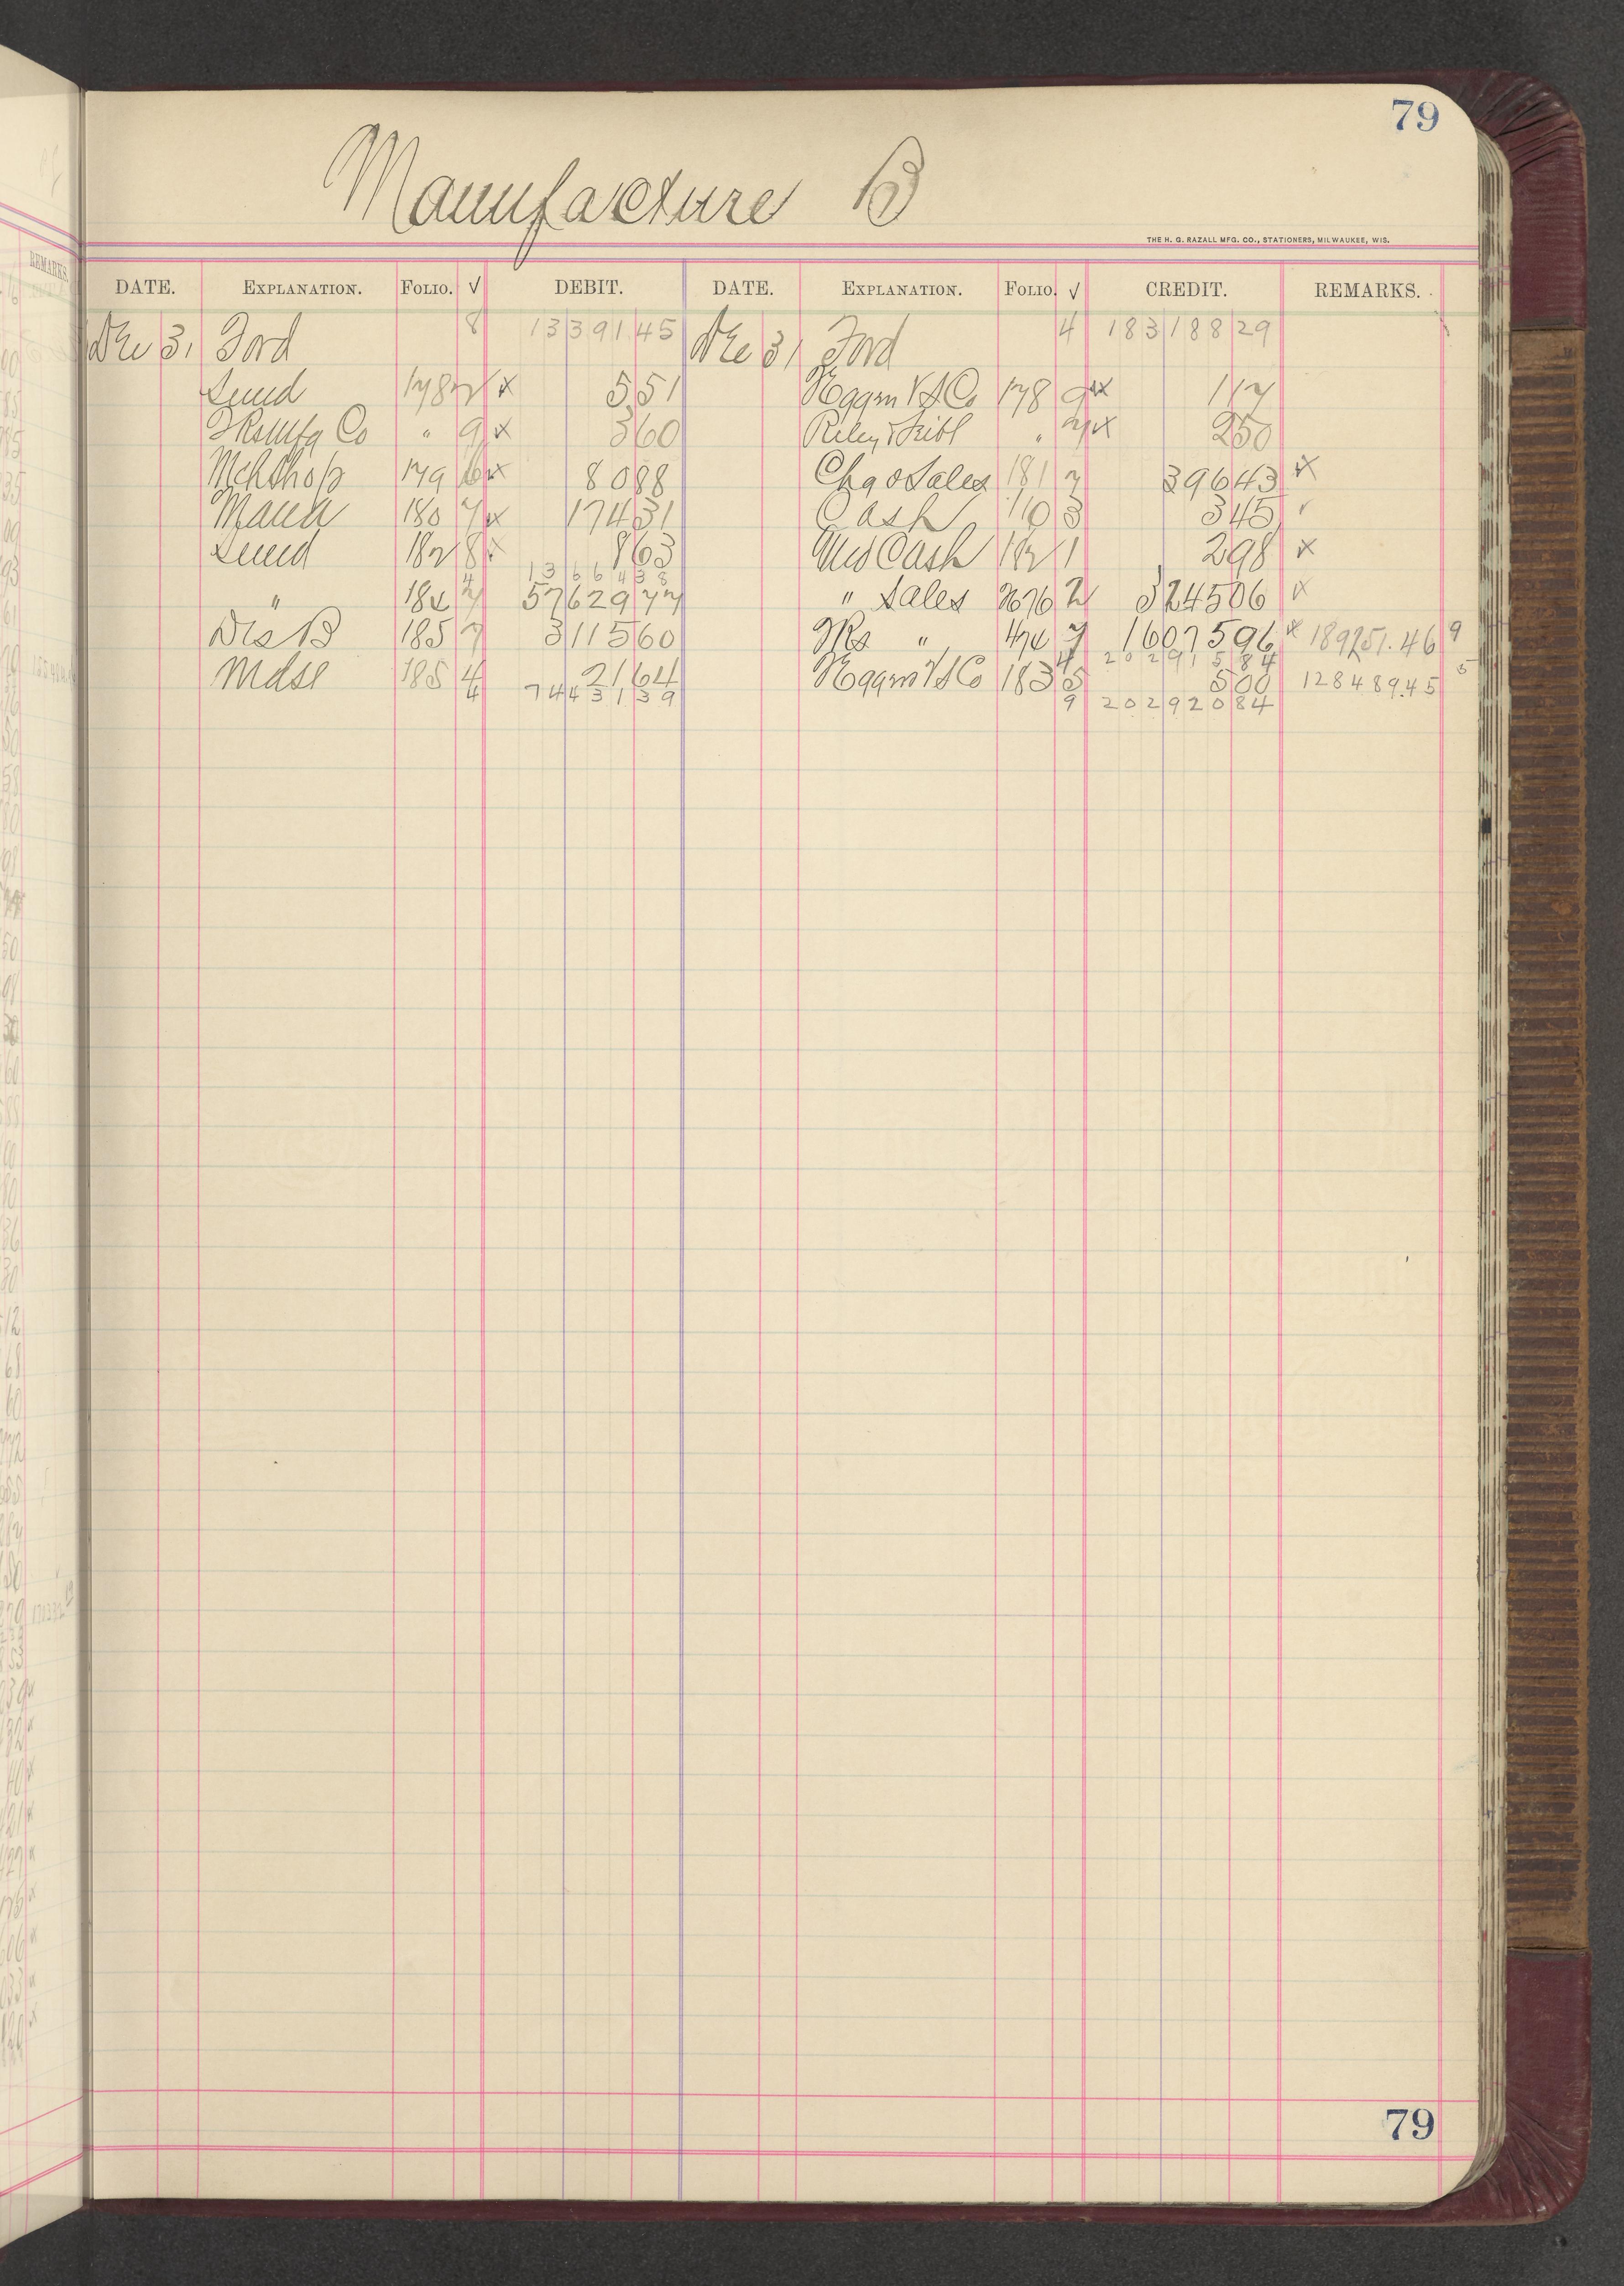 79
Manufacture B
THE H. G. RAZALL MFG. CO., STATIONERS, MILWAUKEE, WIS.
DATE. EXPLANATION. FOLIO. √ DEBIT. DATE. EXPLANATION. FOLIO. √ CREDIT. REMARKS.
Dec 31 Ford 8 13391 45 Dec 31 Ford 4 183188 29
178 2 x 5 51 178 9 x 1 17
Co " 9 x 3 60 Riley & " 7 x 2 50
Mch Shop 179 6 x 80 88 Chg o Sales 181 7 396 43 x
180 7 x 174 31 Cash 110 3 3 45 ✓
182 8 x 8 63 Cash 182 1 2 98 x
4 13664 38
" 184 7 57629 77 " Sales 2676 2 3245 06 x
Dis B 185 7 3115 60 " 474 7 16075 96 x 189251.46 9
4 202915 84
Mdse 185 4 21 64 183 5 5 00 128489.45 5
4 74431 39 9 202920 84
79